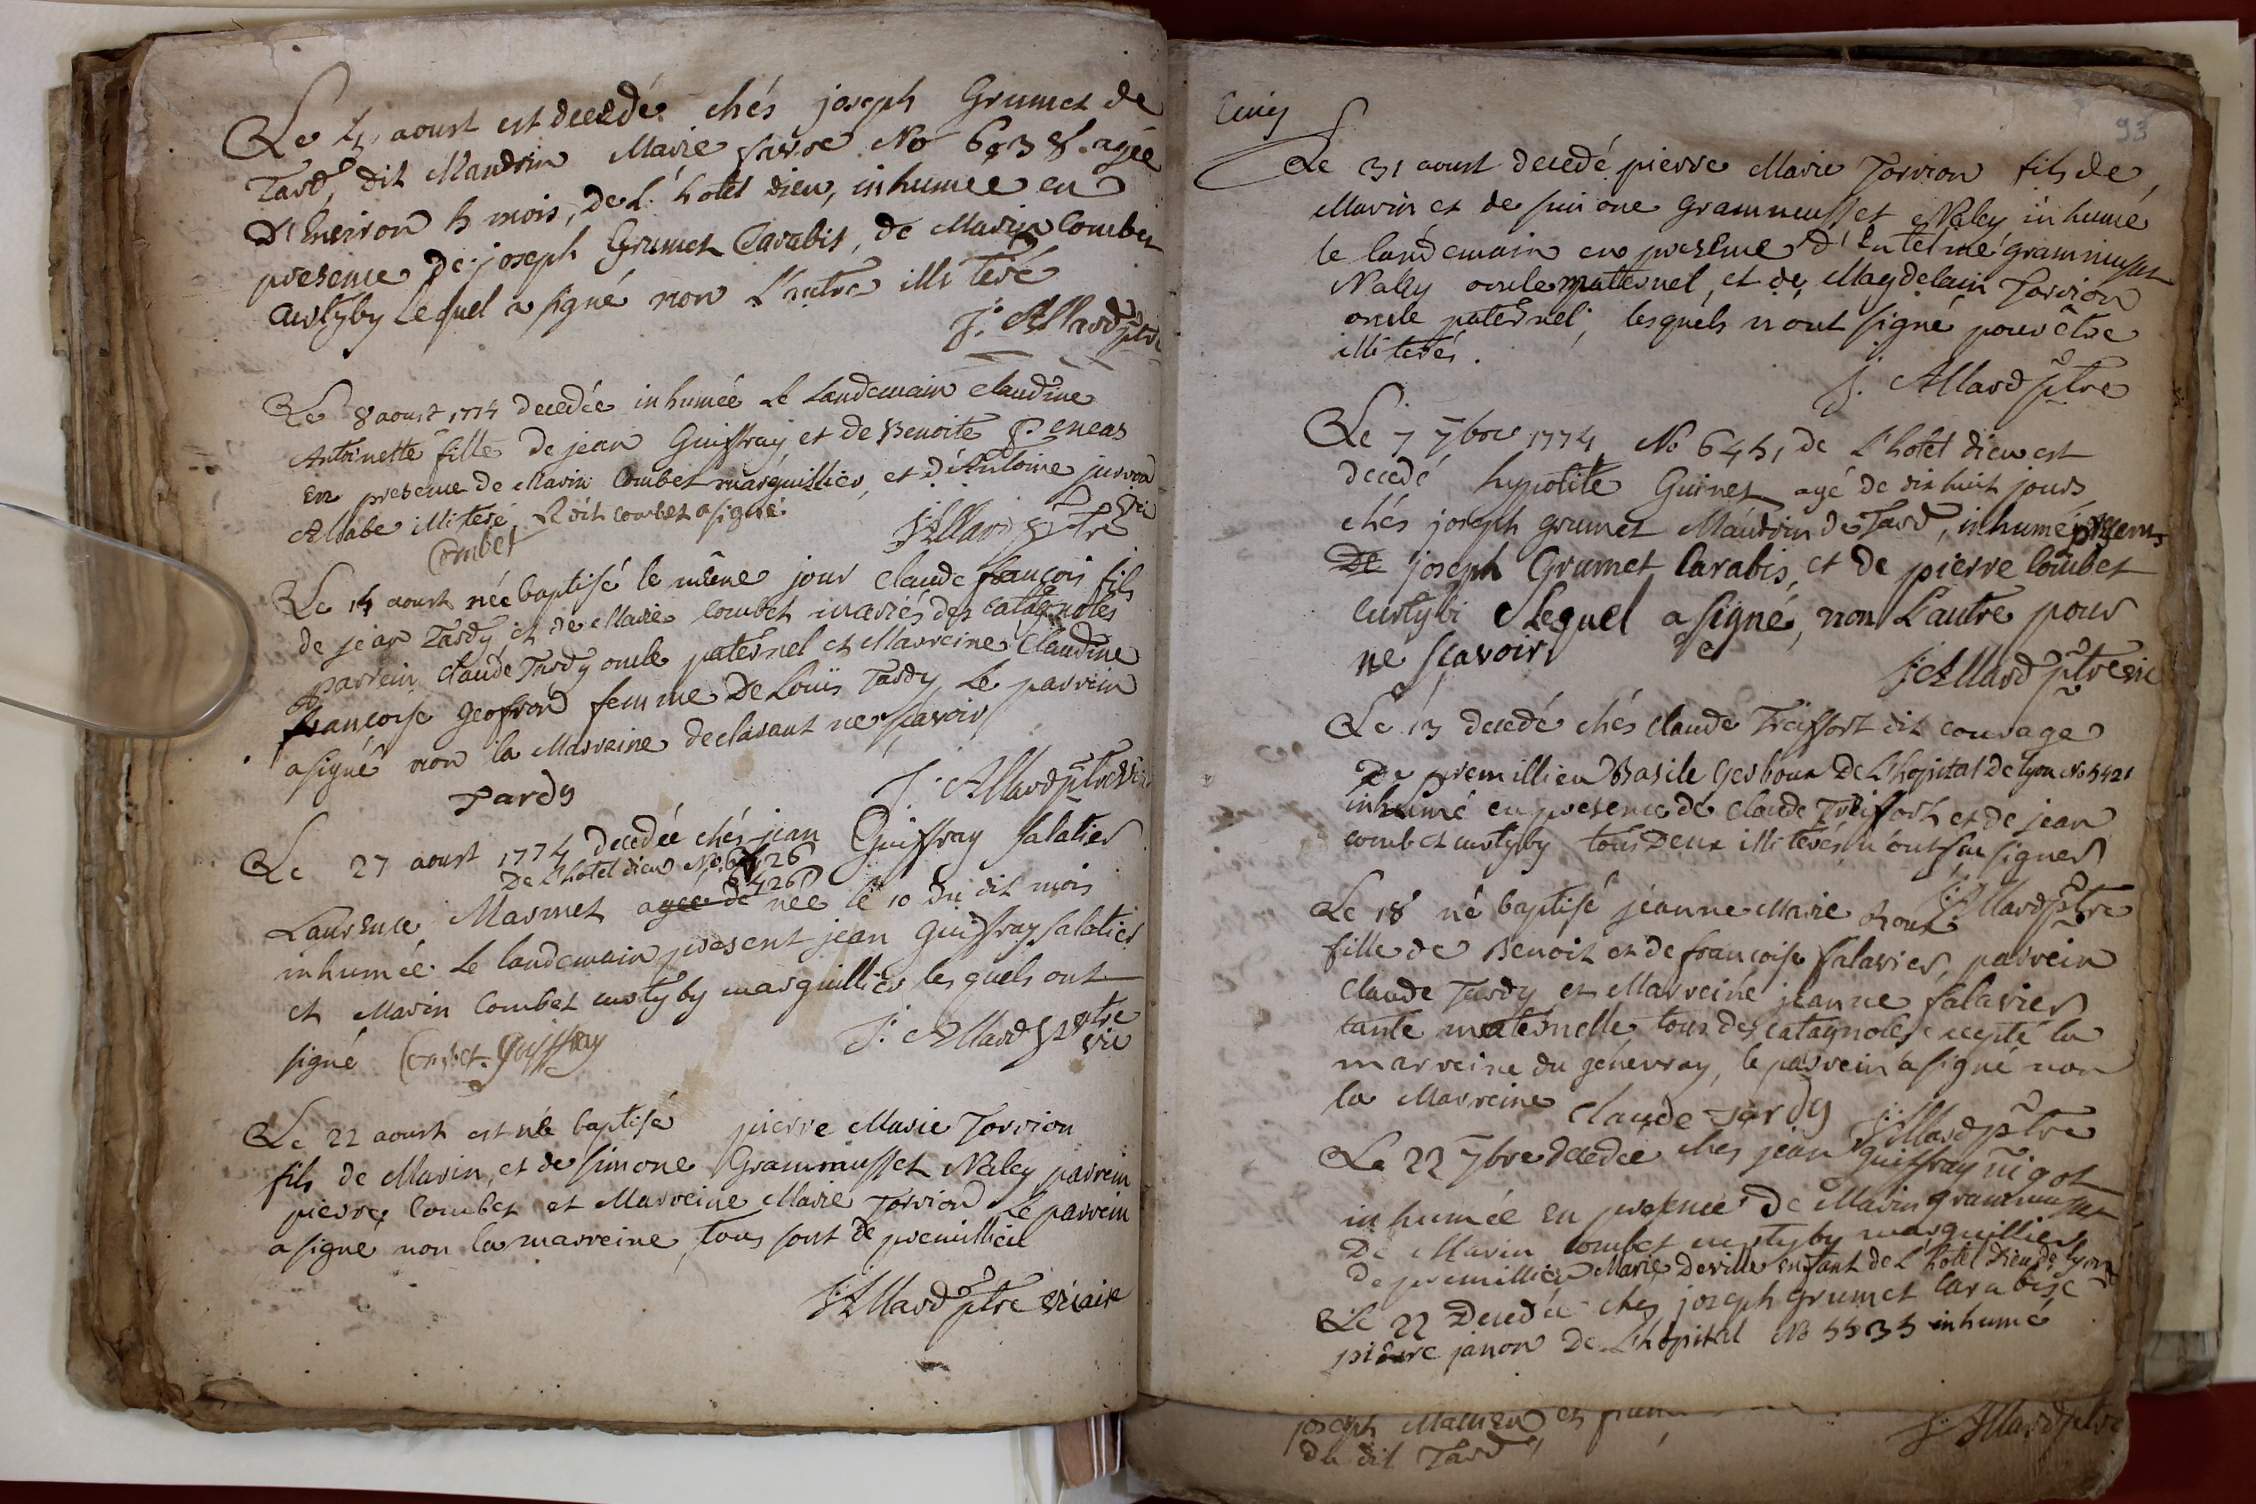 Le 4 aoust est decedé chés joseph Grumet de
Tard, dit Mandrin Marie favre No 6938. agée
D'Environ 5 mois, de L'hotel dieu, inhumee en
presence de joseph Grumet Carabis, de Marin Combet
Curtyby Lequel a signé non L'autre illiteré
J: Allard ptre
Le 8 aoust 1774 decedée inhumée Le Landemain Claudine
Antoinette fille de jean Guiffray, et de Benoite
en presence de Marin Combet marguillier, et d'Antoine
illiteré, Ledit combet a signé.
Combet
J Allard ptre vic
Le 15 aoust né baptisé le même jour Claude françois fils
de jean Tardy, et de Marie Combet mariés des catagnoles
parrein Claude Tardy oncle paternel et Marreine Claudine
françoise Geoffrond femme De Louis Tardy, Le parrein
a signé non la Marreine declarant ne scavoir
Tardy
J. Allard ptre vic
Le 27 aoust 1774 decedée chés jean Guiffray falatier
De L'hotel dieu No 6426
6426
Laurence Marmet agée de née le 10 du dit mois
inhumée Le landemain present jean Guiffray falatier
et Marin Combet curtyby marguillier lesquels ont
signé Combet. Guiffray
J: Allard ptre vic
Le 22 aoust est né baptisé pierre Marie Torrion
fils de Marin, et de simone Grammusset Naley parrein
pierre Combet et Marreine Marie Torrion Le parrein
a signe non la marreine, tous sont de premillieu
J: Allard ptre vicaire
93
Le 31 aoust decedé pierre Marie Torrion fils de
Marin et de simone grammusset Naley inhumé
le landemain en presence d'Entelme grammusset
Naley oncle maternel, et de Magdelain Torrion
oncle paternel; lesquels n'ont signé pour être
illiterés.
J. Allard ptre
Le 7 7bre 1774 No 6451 de L'hotel dieu est
decedé hypolite Guinet agé de dix huit jours
chés joseph grumet Mandrin de Tard, inhumé presens
De joseph Grumet Carabis, et de pierre Combet
Curtybi Lequel a signé, non L'autre pour
ne scavoir
J Allard ptre vic
Le 13 decedé chés Claude Treiffort dit courage
De premillieu Basile Gerboux De L'hopital de lyon No 5421
inhumé en presence de Claude Treiffort et de jean
combet curtyby tous Deux illiterés n'ont su signer
J: Allard ptre
Le 18 né baptisé jeanne Marie Roux
fille de Benoit et de françoise falavier, parrein
Claude Tardy et Marreine jeanne falavier
tante maternelle tous des catagnoles excepté la
marreine du genevray, le parrein a signé non
la Marreine
Claude Tardy
J: Allard ptre
Le 22 7bre decedée ches jean Guiffray nigot
inhumée en presence De Marin grammusset
De Marin combet curtyby marguillier
de premillieu Marie Deville enfant de L'hotel Dieu de lyon
Le 22 Decedée ches joseph grumet Carabise
pierre janon De L'hopital No 5535 inhumé
joseph Mathieu et
du dit Tard
J: Allard ptre